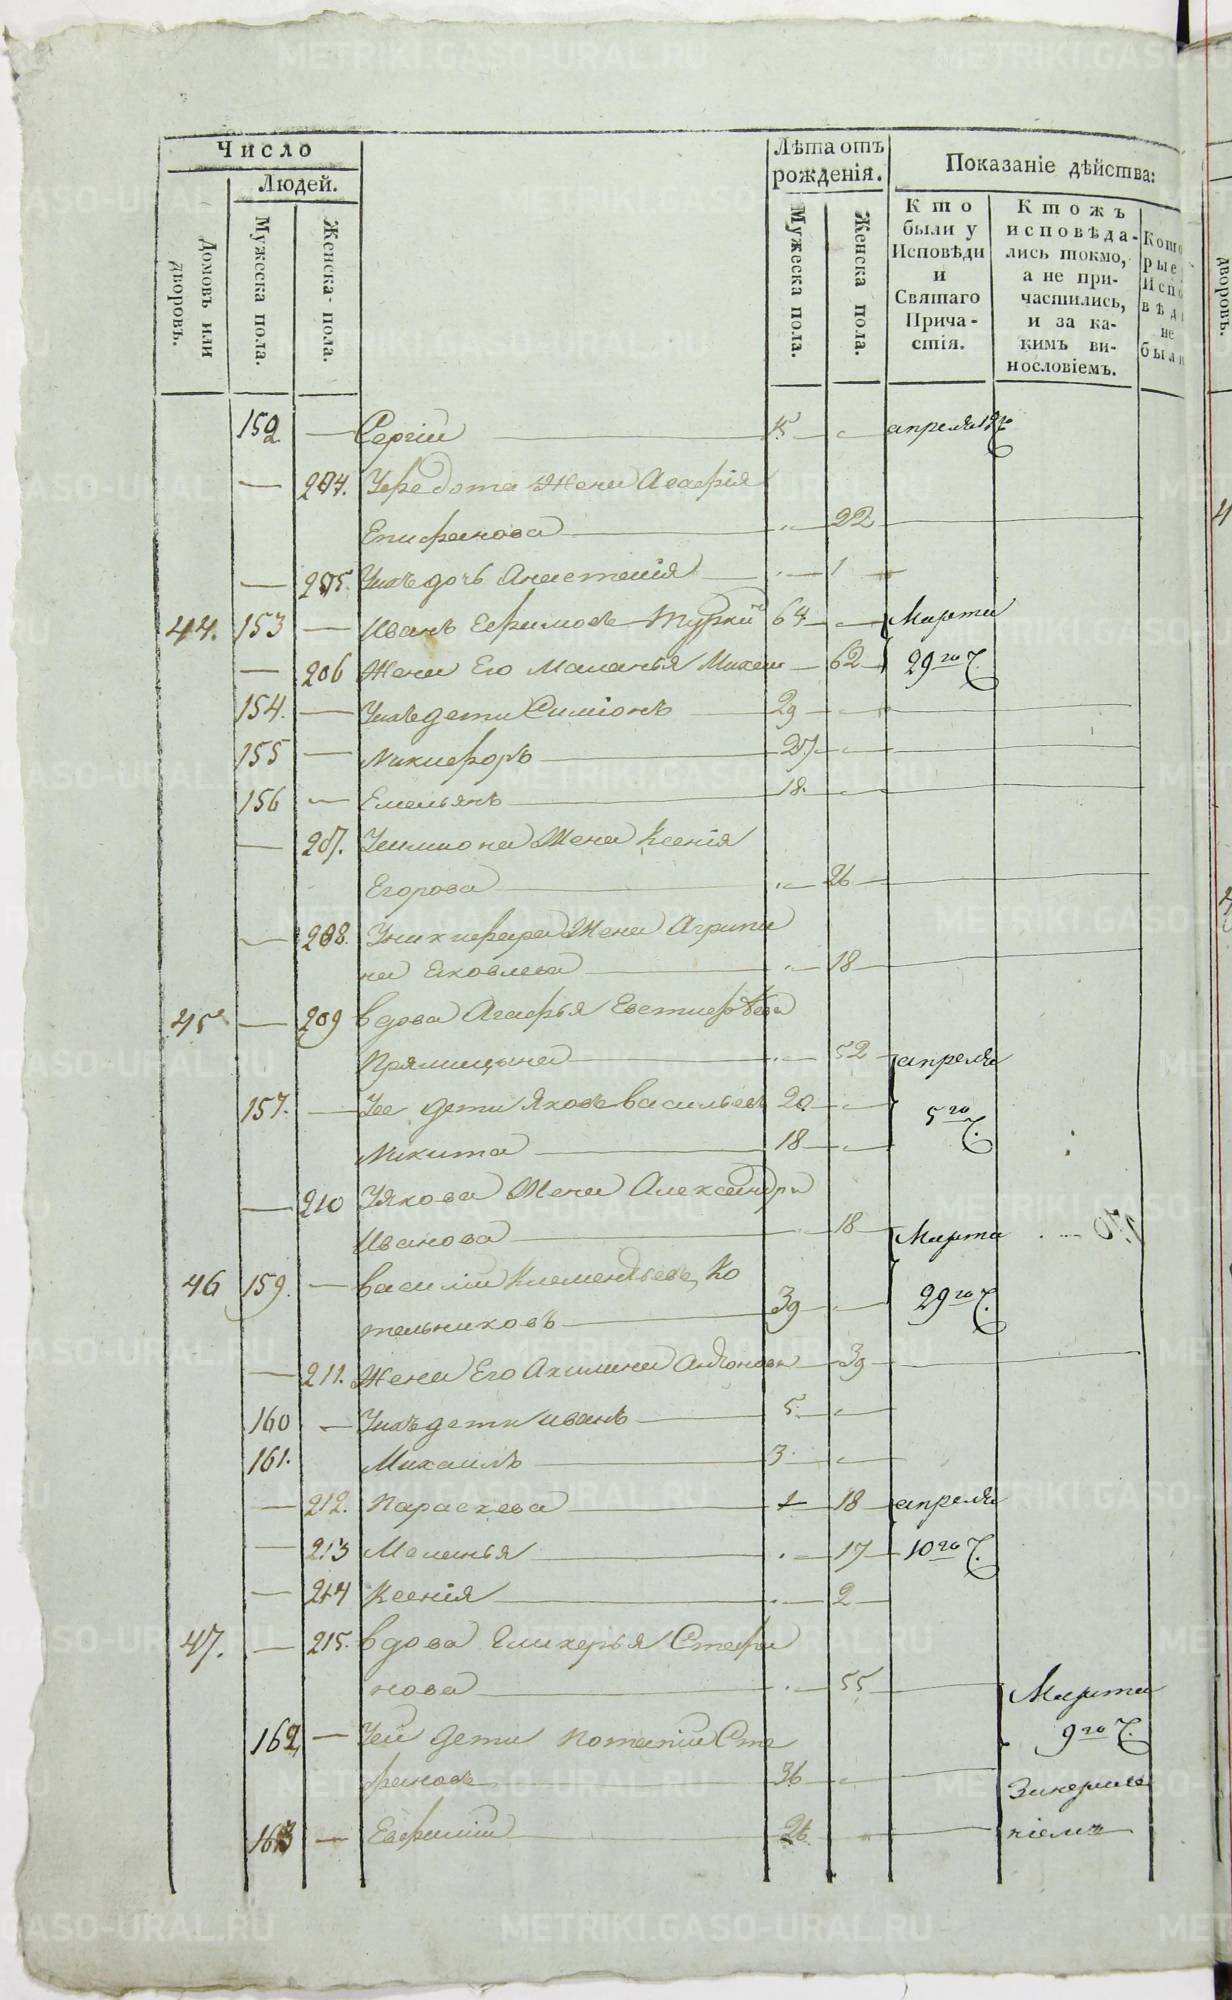 Число
Людей.
Домовъ или дворовъ.
Мужеска пола.
Женска пола.
Лѣта отъ рожденія.
Мужеска пола.
Женска пола.
Показаніе дѣйства:
Кто были у Исповѣди и Святаго Причастія.
Ктожъ исповѣдались токмо, а не причастились, и за какимъ винословіемъ.
Которые Испо вѣд не были
152 — Сергіи — 15 — апреля 12го
— 204. Уфедота Жена Агафія
Епифанова — 22 —
— 205. Унихъ дочь Анастасія — 1 —
44. 153 — Иванъ Ефимовъ 64 — Марта
— 206 Жена Его Маланья — 62 — 29го Ч.
154. — Унихъ дети Симіонъ — 29 —
155 — Никифоръ — 27. —
156 — Емельянъ — 18. —
— 207. Усимиона Жена Ксенія
Егорова — 26 —
— 208. Уникифара Жена Агрипи
на Яковлева — 18 —
45 — 209 вдова Агафья
Прямицына — 52 — апреля
157. — Уее дети Яковъ Васильевъ 20. — 5го Ч.
Никита — 18 —
— 210 Уякова Жена Александра
Иванова — 18 — Марта
46 159. — Василіи Клементьевъ, Ко
тельниковъ — 39 — 29го Ч.
— 211. Жена Его Акилина Антонова — 39 —
160 — Унихъ дети Иванъ — 5. —
161. Михаилъ — 3 —
— 212. Параскева — 1 — 18 — апреля
— 213 Меланья — 17 — 10го Ч.
— 214 Ксенія — 2 —
47. — 215. вдова Гликерья Стефа
нова — 55 — Марта
162 — Уей дети Потапіи Сте 9го Ч.
фановъ — 36 —
163 — Евфиміи — 26 — ніемъ
METRIKI.GASO-URAL.RU